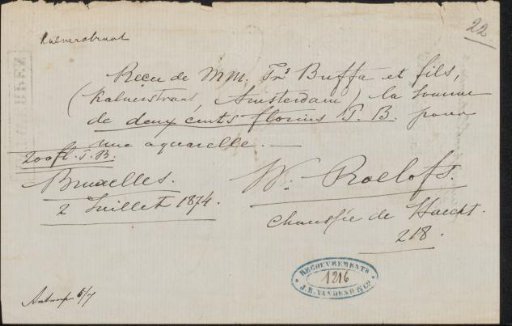 22
Kalverstraat
Recu de MM. Frs Buffa et fils,
(Kalverstraat, Amsterdam) la somme
de deux cents florins P. B. pour
une aquarelle.—
200 fl. P. B.
Bruxelles.
2 Juillet 1874.
W. Roelofs.
Chaussée de Haecht.
218.
RECOUVREMENTS
1216
Antwerp 6/7